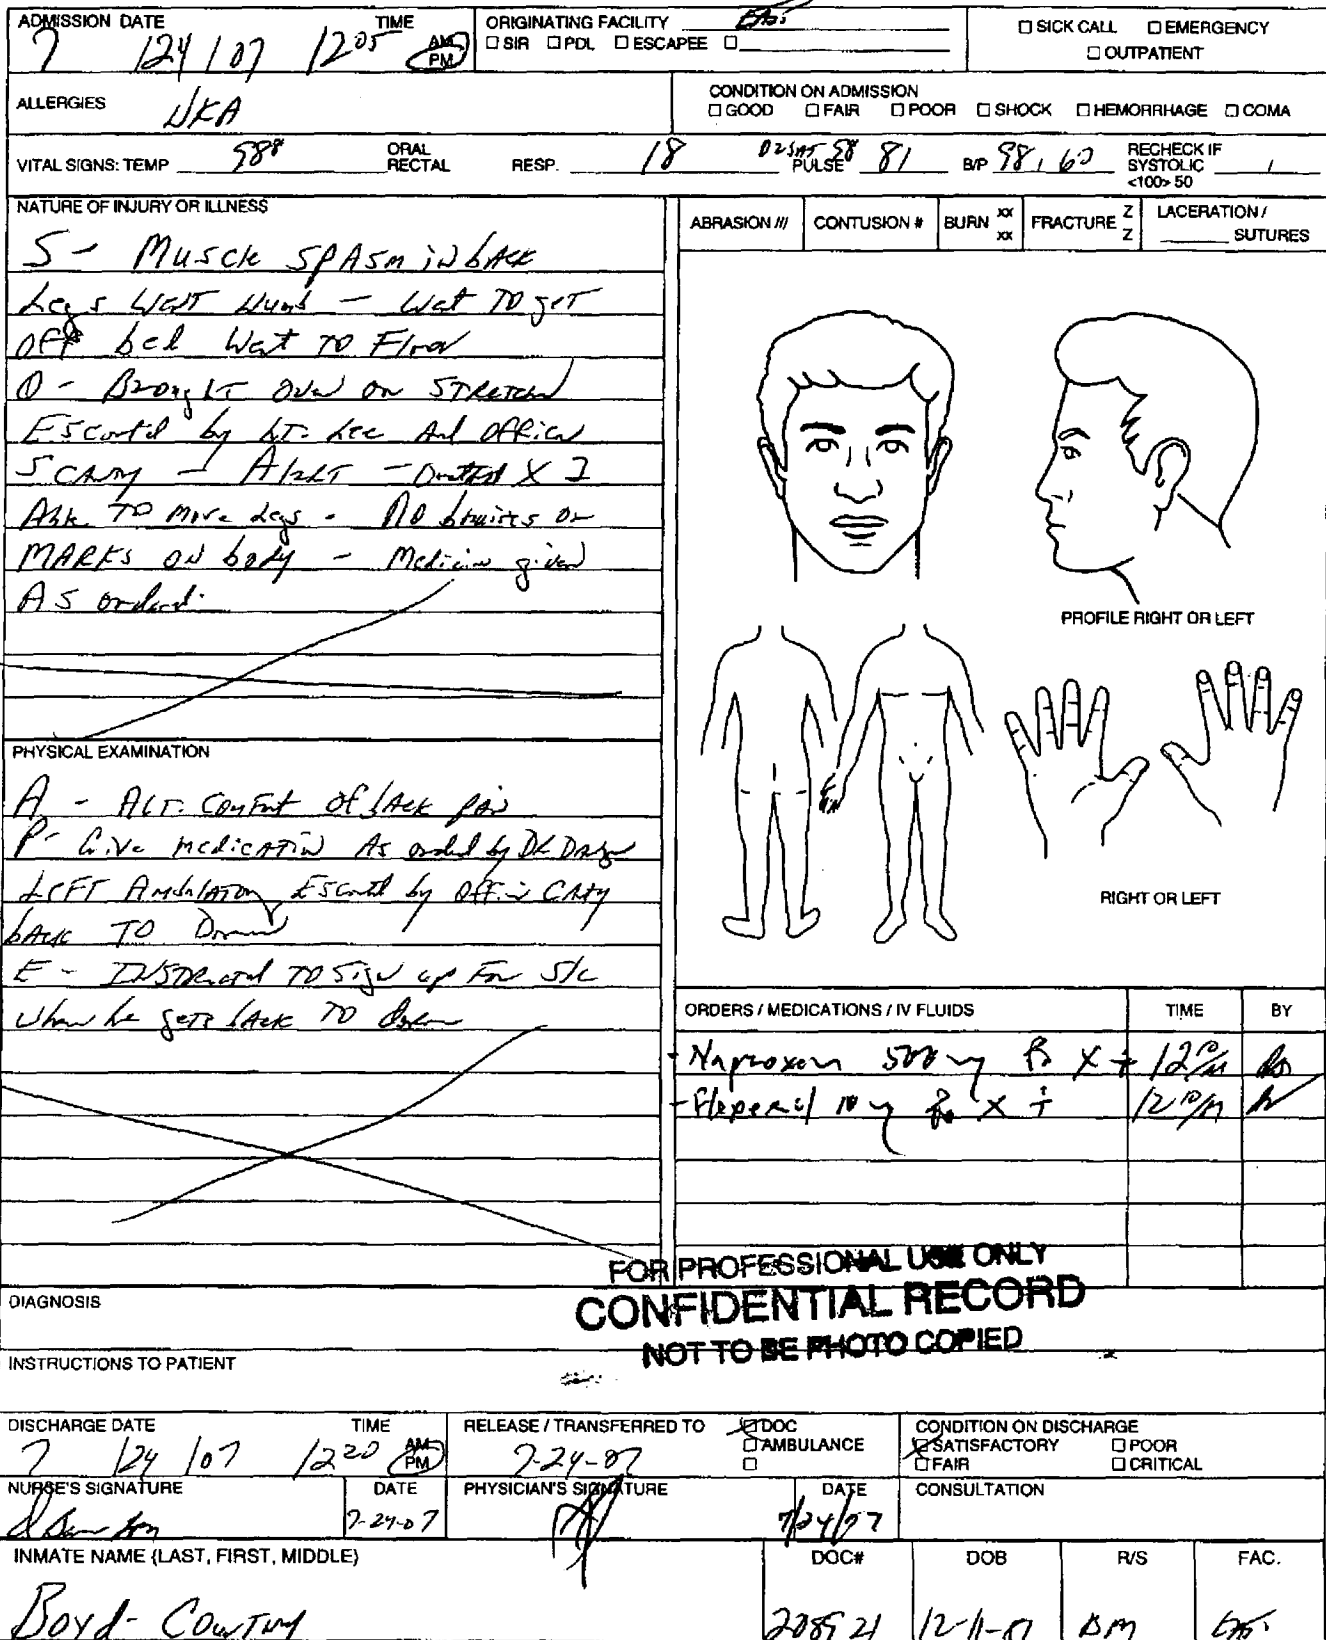 ADMISSION DATE TIME ORIGINATING FACILITY
☐ SICK CALL ☐ EMERGENCY
7 /24/07 1205 AM PM ☐ SIR ☐ PDL ☐ ESCAPEE ☐
☐ OUTPATIENT
ALLERGIES NKA
CONDITION ON ADMISSION
☐ GOOD ☐ FAIR ☐ POOR ☐ SHOCK ☐ HEMORRHAGE ☐ COMA
VITAL SIGNS: TEMP 988 ORAL RECTAL RESP. 18 O2SAT 98 PULSE 81 B/P 98/60 RECHECK IF SYSTOLIC / <100> 50
NATURE OF INJURY OR ILLNESS
S - Muscle SPASM in back
Legs WENT Numb - Went TO get
OFF bed Went TO Floor
O - Brought over on STRETCHER
Escorted by LT. Lee And Officer
- Alert - X 3
Able TO Move Legs - NO bruises or
MARKS ON body - Medicine given
AS ordered.
ABRASION /// CONTUSION # BURN xx xx FRACTURE Z Z LACERATION / SUTURES
PROFILE RIGHT OR LEFT
RIGHT OR LEFT
PHYSICAL EXAMINATION
A - ALT. Comfort of back pain
P - Give medication As ordered by DR.
LEFT Ambulatory Escorted by Officer
back TO Dorm
E - INSTRUCTED TO Sign up For S/C
when he gets back TO dorm
ORDERS / MEDICATIONS / IV FLUIDS TIME BY
- Naproxen 500 mg Po X
- Flexeril 10 mg Po X
FOR PROFESSIONAL USE ONLY
CONFIDENTIAL RECORD
NOT TO BE PHOTO COPIED
DIAGNOSIS
INSTRUCTIONS TO PATIENT
DISCHARGE DATE TIME RELEASE / TRANSFERRED TO ☐ DOC CONDITION ON DISCHARGE
7 /24 /07 1220 AM PM 7-24-07 ☐ AMBULANCE ☐ SATISFACTORY ☐ POOR
☐ ☐ FAIR ☐ CRITICAL
NURSE'S SIGNATURE DATE PHYSICIAN'S SIGNATURE DATE CONSULTATION
7-24-07 7/24/07
INMATE NAME (LAST, FIRST, MIDDLE) DOC# DOB R/S FAC.
Boyd- 12-11-81 BM